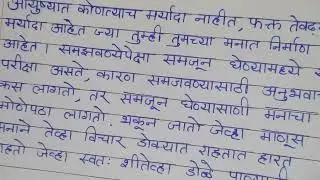 आयुष्यात कोणत्याच मर्यादा नाहीत, फक्त तेवढ्या
मर्यादा आहेत ज्या तुम्ही तुमच्या मनात निर्माण
आहेत। समझवण्यापेक्षा समजून घेण्यामध्ये
परीक्षा असते, कारण समजवण्यासाठी अनुभवाचा
कस लागतो, तर समजून घेण्यासाठी मनाचा
मोठेपणा लागतो. थकून जातो जेव्हा माणूस
मनाने तेव्हा विचार डोक्यात राहतात हारत
जेव्हा स्वतः शीतेव्हा डोळे